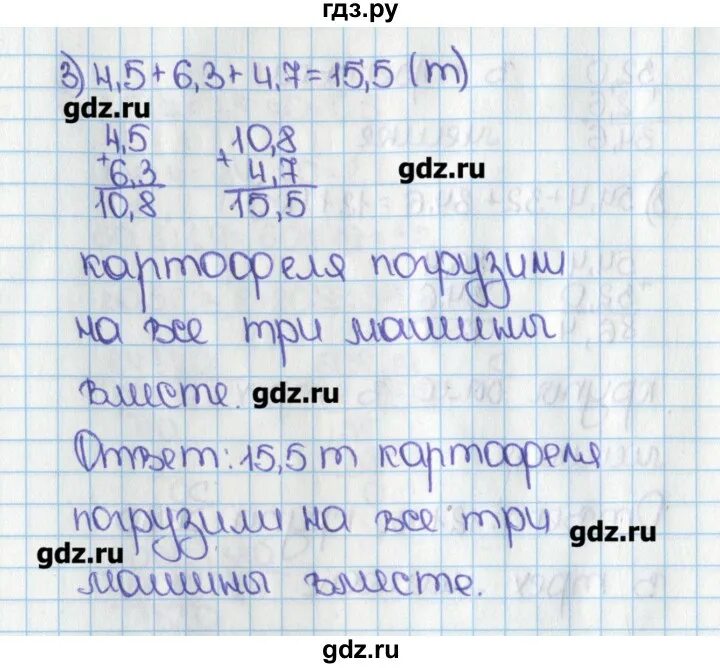 гдз.ру
3) 4,5 + 6,3 + 4,7 = 15,5 (т)
gdz.ru
4,5
+
6,3
10,8
10,8
+
4,7
15,5
gdz.ru
картофеля погрузили
на все три машины
вместе.
gdz.ru
Ответ: 15,5 т картофеля
погрузили на все три
gdz.ru
gdz.ru
машины вместе.
gdz.ru